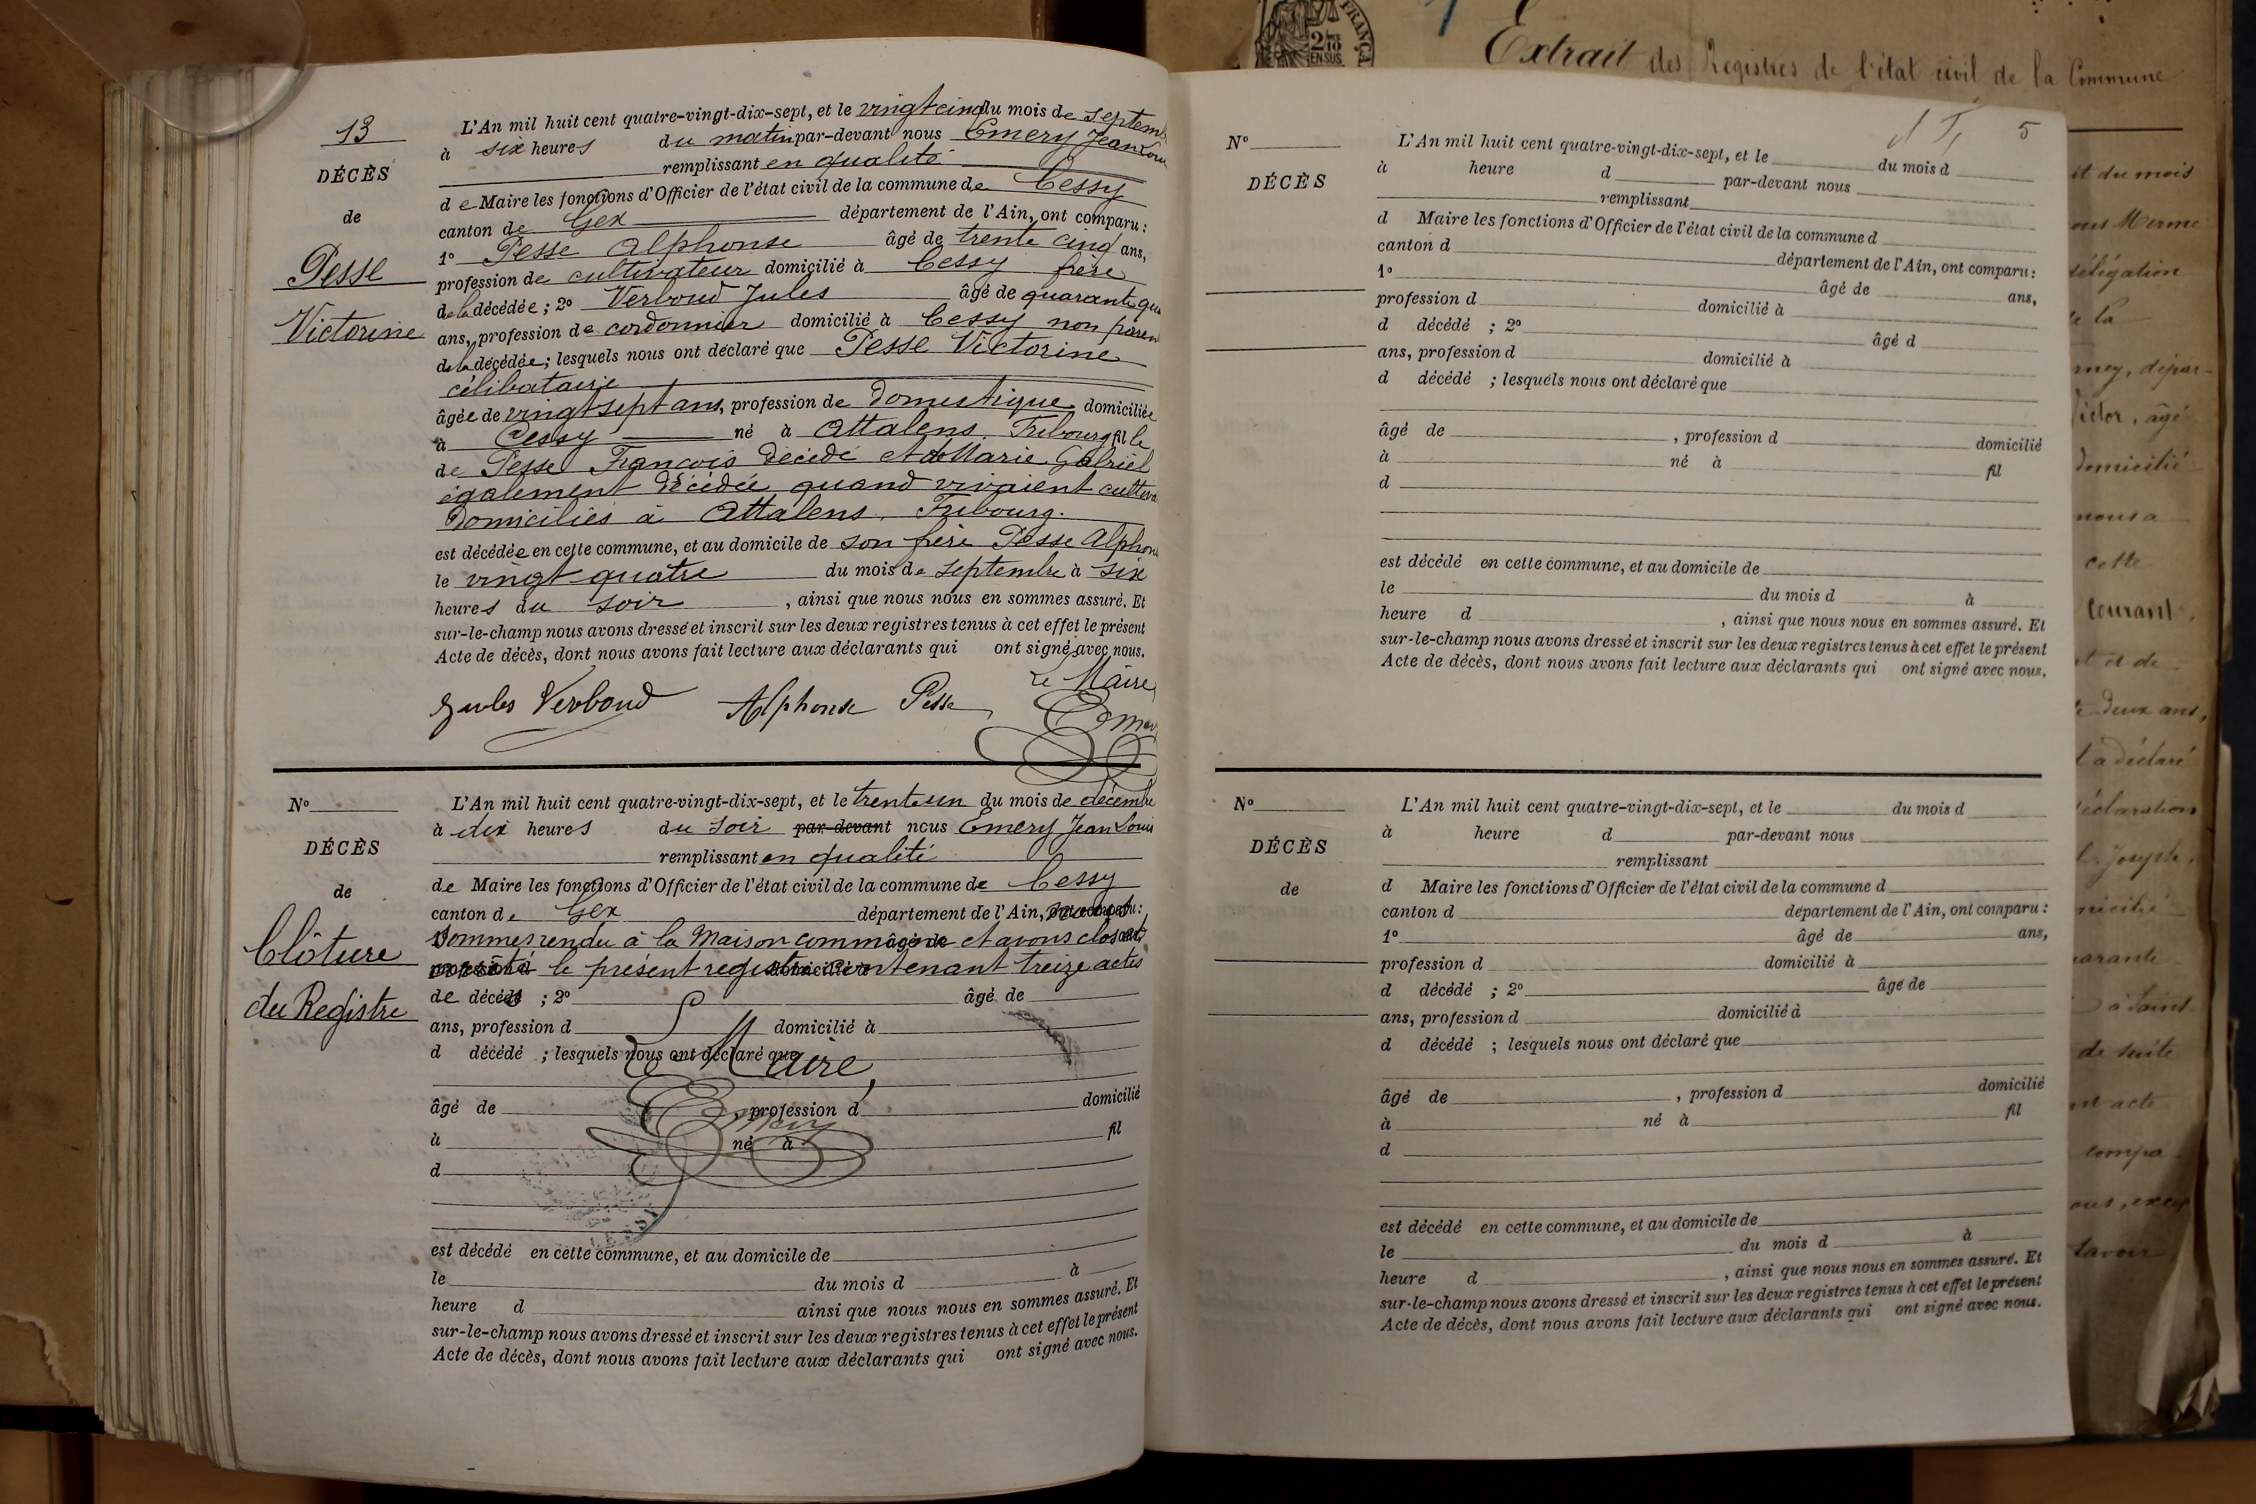 13
DÉCÈS
de
Pesse
Victorine
L'An mil huit cent quatre-vingt-dix-sept, et le vingt cinq du mois de septem
à six heures du matin par-devant nous Emery Jean Loui
remplissant en qualité
de Maire les fonctions d'Officier de l'état civil de la commune de Cessy
canton de Gex département de l'Ain, ont comparu :
1º Pesse Alphonse âgé de trente cinq ans,
profession de cultivateur domicilié à Cessy frère
de la décédée ; 2º Verboud Jules âgé de quarante qua
ans, profession de cordonnier domicilié à Cessy non paren
de la décédée ; lesquels nous ont déclaré que Pesse Victorine
célibataire
âgée de vingt sept ans, profession de Domestique domiciliée
à Cessy né à Attalens. Fribourg fille
de Pesse François décédé et de Marie Gabriel
également décédée quand vivaient cultiva
domiciliés à Attalens. Fribourg.
est décédée en cette commune, et au domicile de son frère Pesse Alphon
le vingt quatre du mois de septembre à six
heures du soir , ainsi que nous nous en sommes assuré. Et
sur-le-champ nous avons dressé et inscrit sur les deux registres tenus à cet effet le présent
Acte de décès, dont nous avons fait lecture aux déclarants qui ont signé avec nous.
Le Maire,
Jules Verboud Alphonse Pesse Emery
Nº
DÉCÈS
de
Clôture
du Registre
L'An mil huit cent quatre-vingt-dix-sept, et le trente un du mois de décembre
à dix heures du soir par-devant nous Emery Jean Louis
remplissant en qualité
de Maire les fonctions d'Officier de l'état civil de la commune de Cessy
canton de Gex département de l'Ain, ont comparu :
sommes rendu à la Maison commune âgé de et avons clos et
profession d le présent registre domicilié à contenant treize actes
de décès ; 2º âgé de
ans, profession d domicilié à
d décédé ; lesquels nous ont déclaré que
Le Maire,
âgé de , profession d domicilié
Emery
à né à fil
d
est décédé en cette commune, et au domicile de
le du mois d à
heure d ainsi que nous nous en sommes assuré. Et
sur-le-champ nous avons dressé et inscrit sur les deux registres tenus à cet effet le présent
Acte de décès, dont nous avons fait lecture aux déclarants qui ont signé avec nous.
Extrait des Registres de l'état civil de la Commune
5
Nº
DÉCÈS
L'An mil huit cent quatre-vingt-dix-sept, et le du mois d
à heure d par-devant nous
remplissant
d Maire les fonctions d'Officier de l'état civil de la commune d
canton d département de l'Ain, ont comparu :
1º âgé de ans,
profession d domicilié à
d décédé ; 2º âgé d
ans, profession d domicilié à
d décédé ; lesquels nous ont déclaré que
âgé de , profession d domicilié
à né à fil
d
est décédé en cette commune, et au domicile de
le du mois d à
heure d , ainsi que nous nous en sommes assuré. Et
sur-le-champ nous avons dressé et inscrit sur les deux registres tenus à cet effet le présent
Acte de décès, dont nous avons fait lecture aux déclarants qui ont signé avec nous.
Nº
DÉCÈS
de
L'An mil huit cent quatre-vingt-dix-sept, et le du mois d
à heure d par-devant nous
remplissant
d Maire les fonctions d'Officier de l'état civil de la commune d
canton d département de l'Ain, ont comparu :
1º âgé de ans,
profession d domicilié à
d décédé ; 2º âgé de
ans, profession d domicilié à
d décédé ; lesquels nous ont déclaré que
âgé de , profession d domicilié
à né à fil
d
est décédé en cette commune, et au domicile de
le du mois d à
heure d , ainsi que nous nous en sommes assuré. Et
sur-le-champ nous avons dressé et inscrit sur les deux registres tenus à cet effet le présent
Acte de décès, dont nous avons fait lecture aux déclarants qui ont signé avec nous.
et du mois
délégation
de la
mey, dépar-
ictor, âgé
domicilié
nous a
cette
courant,
et de
deux ans,
a déclaré
déclaration
Joseph,
arante
à saint
de suite
acte
compa
savoir